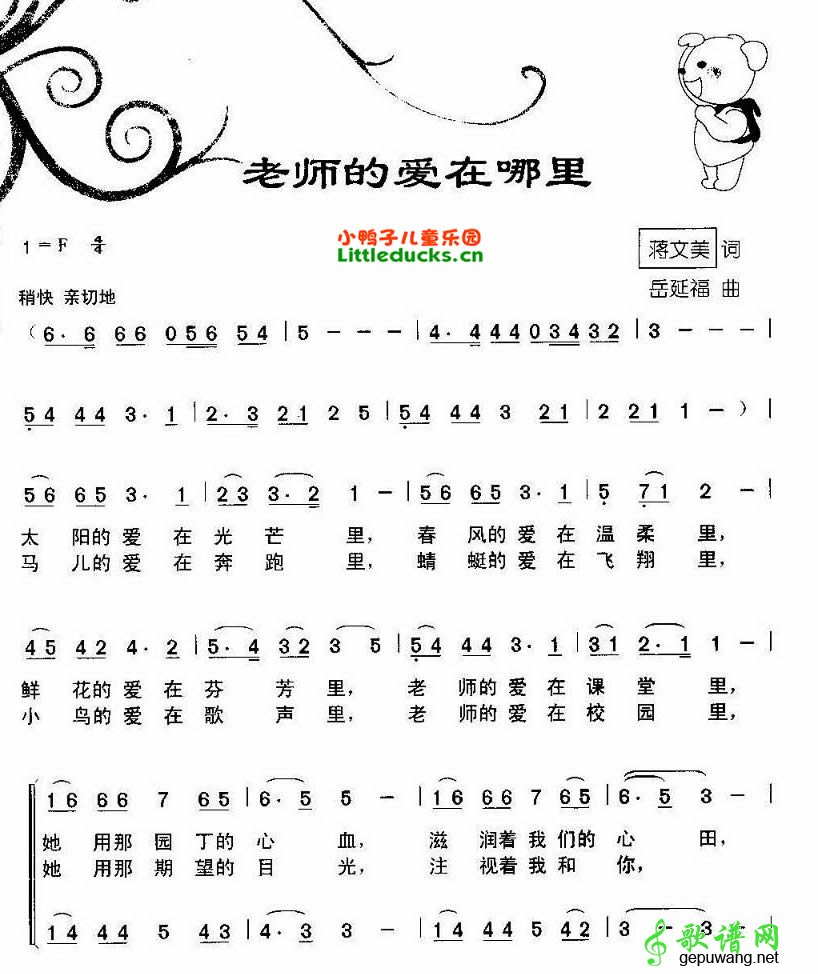 老师的爱在哪里
小鸭子儿童乐园
Littleducks.cn
1=F 4/4
蒋文美 词
稍快 亲切地
岳延福 曲
(6· 6 66 0 56 54 | 5 - - - | 4· 4 440 34 32 | 3 - - - |
54 44 3· 1 | 2· 3 21 2 5 | 54 44 3 21 | 2 21 1 - ) |
56 65 3· 1 | 23 3·2 1 - | 56 65 3· 1 | 5 71 2 - |
太 阳的 爱 在 光 芒 里, 春 风的 爱 在 温 柔 里,
马 儿的 爱 在 奔 跑 里, 蜻 蜓的 爱 在 飞 翔 里,
45 42 4· 2 | 5·4 32 3 5 | 54 44 3· 1 | 31 2·1 1 - |
鲜 花的 爱 在 芬 芳 里, 老 师的 爱 在 课 堂 里,
小 鸟的 爱 在 歌 声 里, 老 师的 爱 在 校 园 里,
16 66 7 65 | 6·5 5 - | 16 66 7 65 | 6·5 3 - |
她 用那 园 丁的 心 血, 滋 润着 我 们的 心 田,
她 用那 期 望的 目 光, 注 视着 我 和 你,
14 44 5 43 | 4·3 3 - | 14 44 5 42 | 3·3 3 -
歌谱网
gepuwang.net